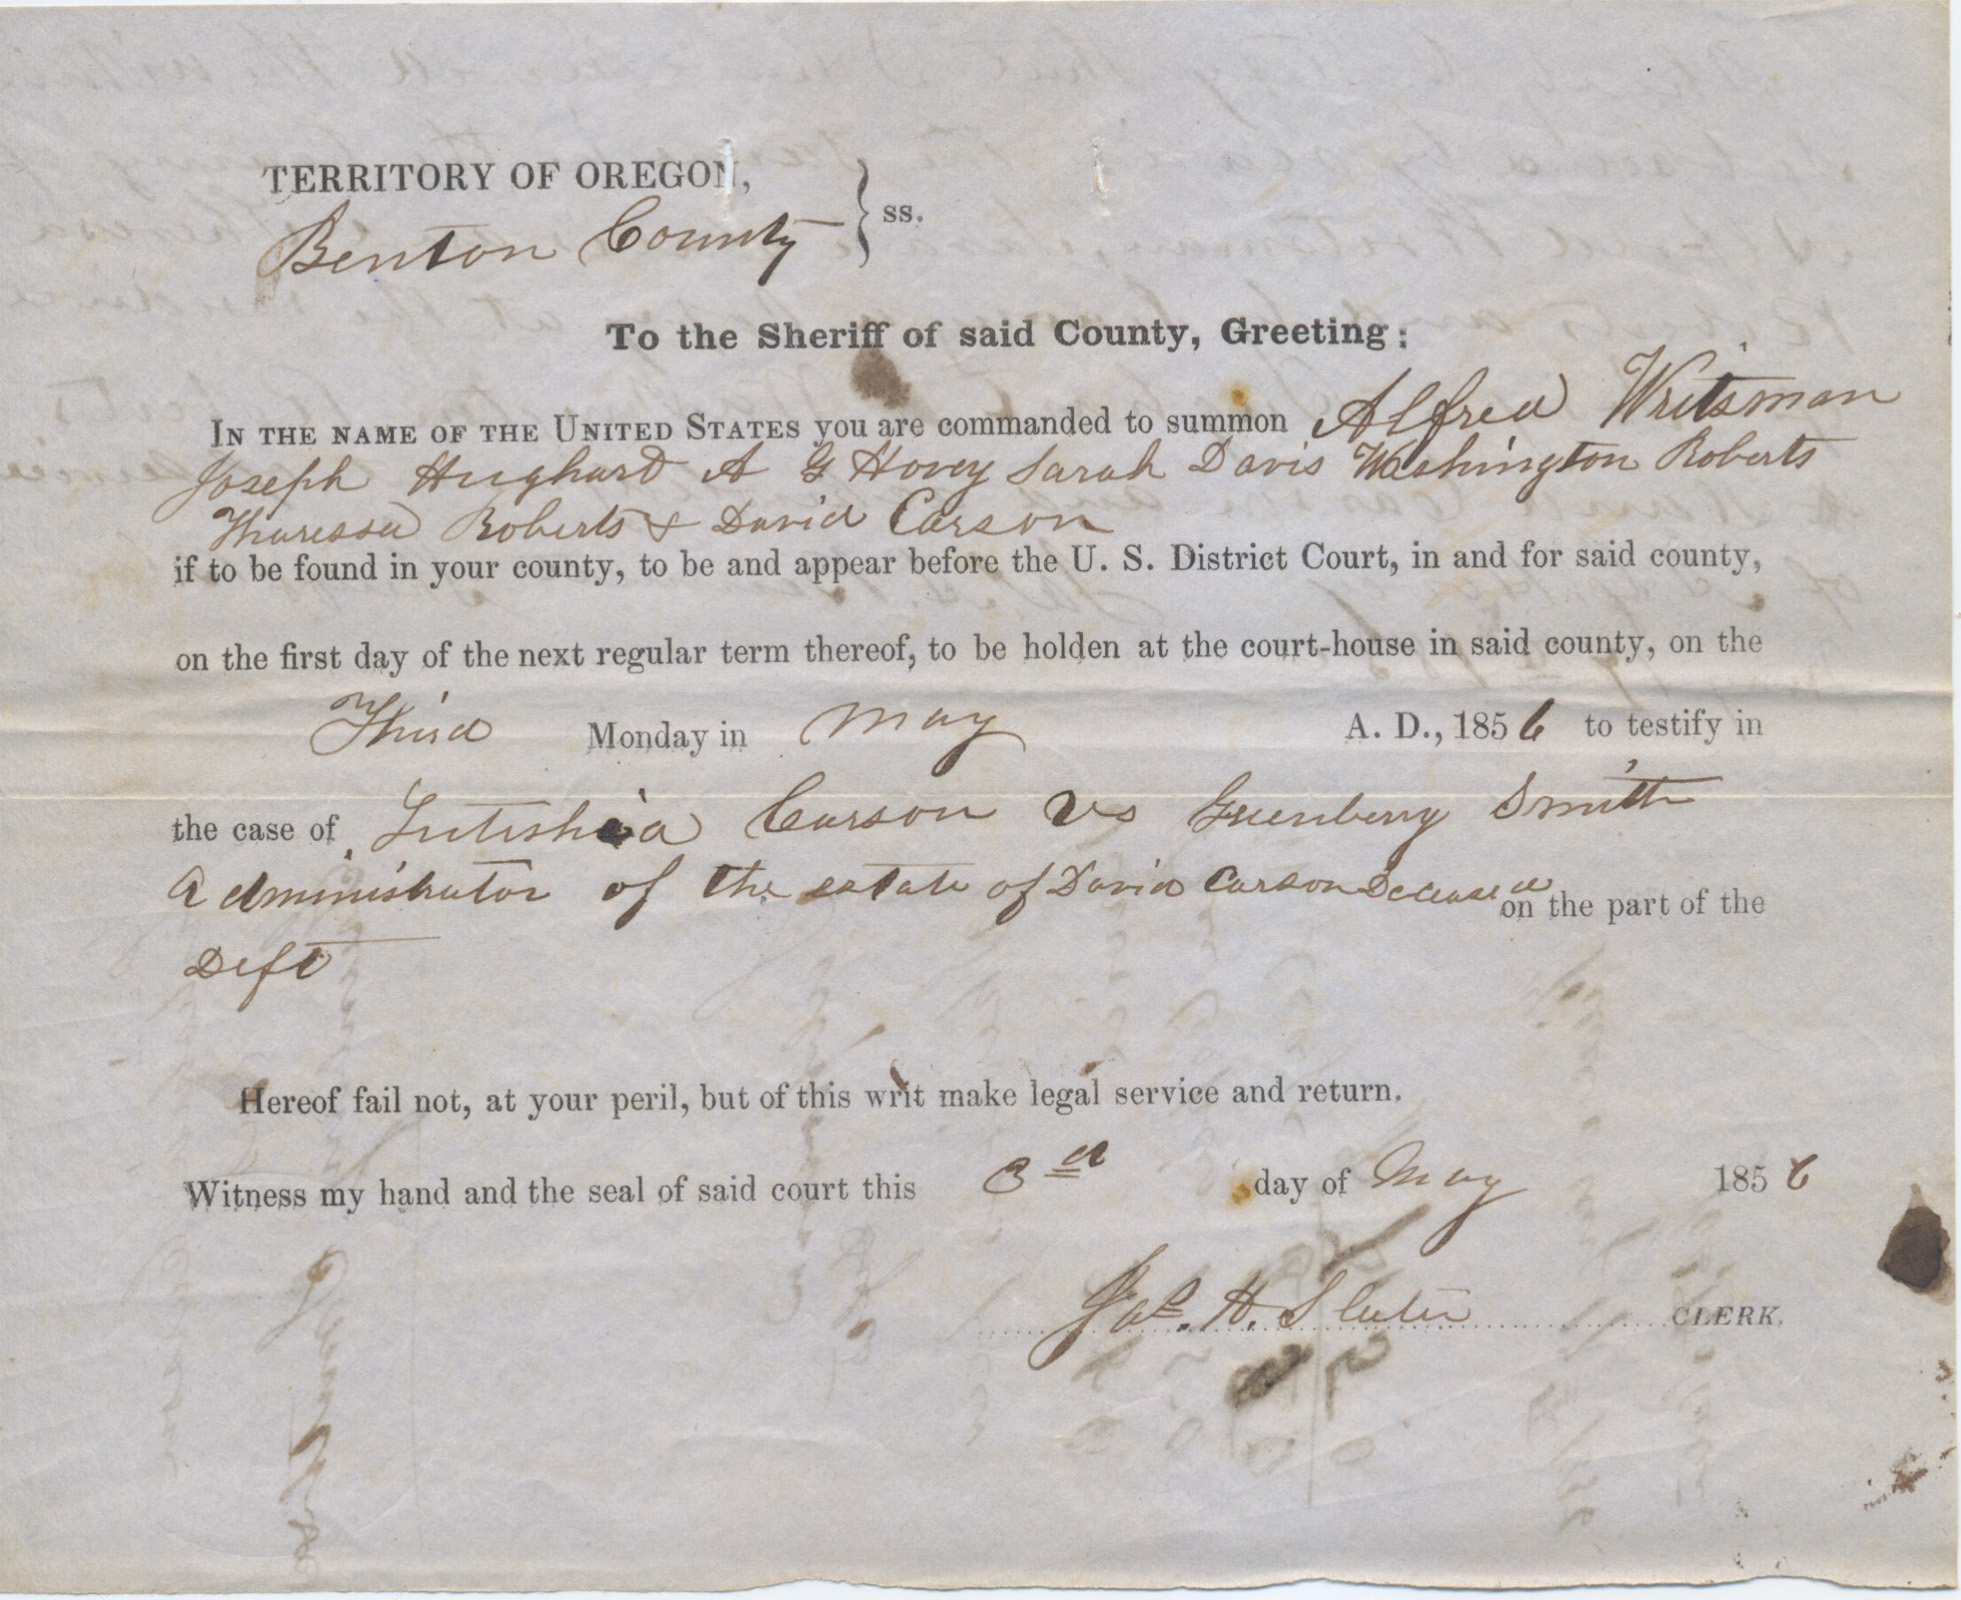 TERRITORY OF OREGON,
Benton County } ss.
To the Sheriff of said County, Greeting:
IN THE NAME OF THE UNITED STATES you are commanded to summon Alfred Writsman
Joseph Hughart A G Hovey Sarah Davis Washington Roberts
Tharessa Roberts & David Carson
if to be found in your county, to be and appear before the U. S. District Court, in and for said county,
on the first day of the next regular term thereof, to be holden at the court-house in said county, on the
Third Monday in May A. D., 1856 to testify in
the case of Lutishia Carson vs Greenberry Smith
Administrator of the estate of David Carson Deceased on the part of the
Deft
Hereof fail not, at your peril, but of this writ make legal service and return.
Witness my hand and the seal of said court this 3rd day of May 1856
Jas. H. Slater CLERK.